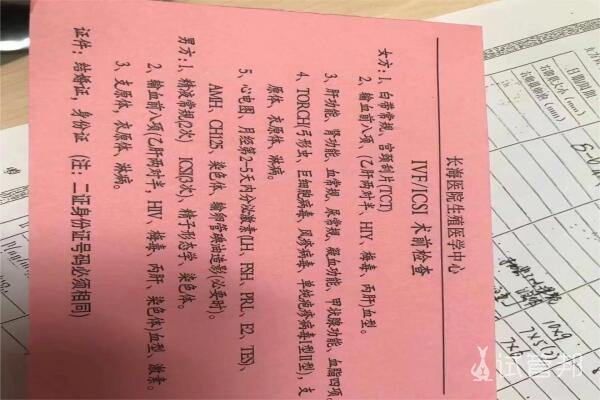 长海医院生殖医学中心
IVF/ICSI 术前检查
女方：1、白带常规，宫颈刮片(TCT)
2、输血前八项（乙肝两对半、HIV、梅毒、丙肝)血型。
3、肝功能、肾功能、血常规、尿常规、凝血功能、甲状腺功能、血脂四项。
4、TORCH(弓形虫、巨细胞病毒、风疹病毒、单纯疱疹病毒I型II型)，支
原体，衣原体，淋病。
5、心电图、月经第2~5天内分泌激素(LH、FSH、PRL、E2、TES)、
AMH、CH125、染色体、输卵管碘油造影(必要时)。
男方：1、精液常规(2次) ICSI(3次)、精子形态学、染色体。
2、输血前八项(乙肝两对半，HIV，梅毒、丙肝、染色体)血型、激素。
3、支原体，衣原体，淋病。
证件：结婚证，身份证（注：二证身份证号码必须相同）
日期/周期
右卵巢大小(mm)
右侧卵泡(mm)
试管邦